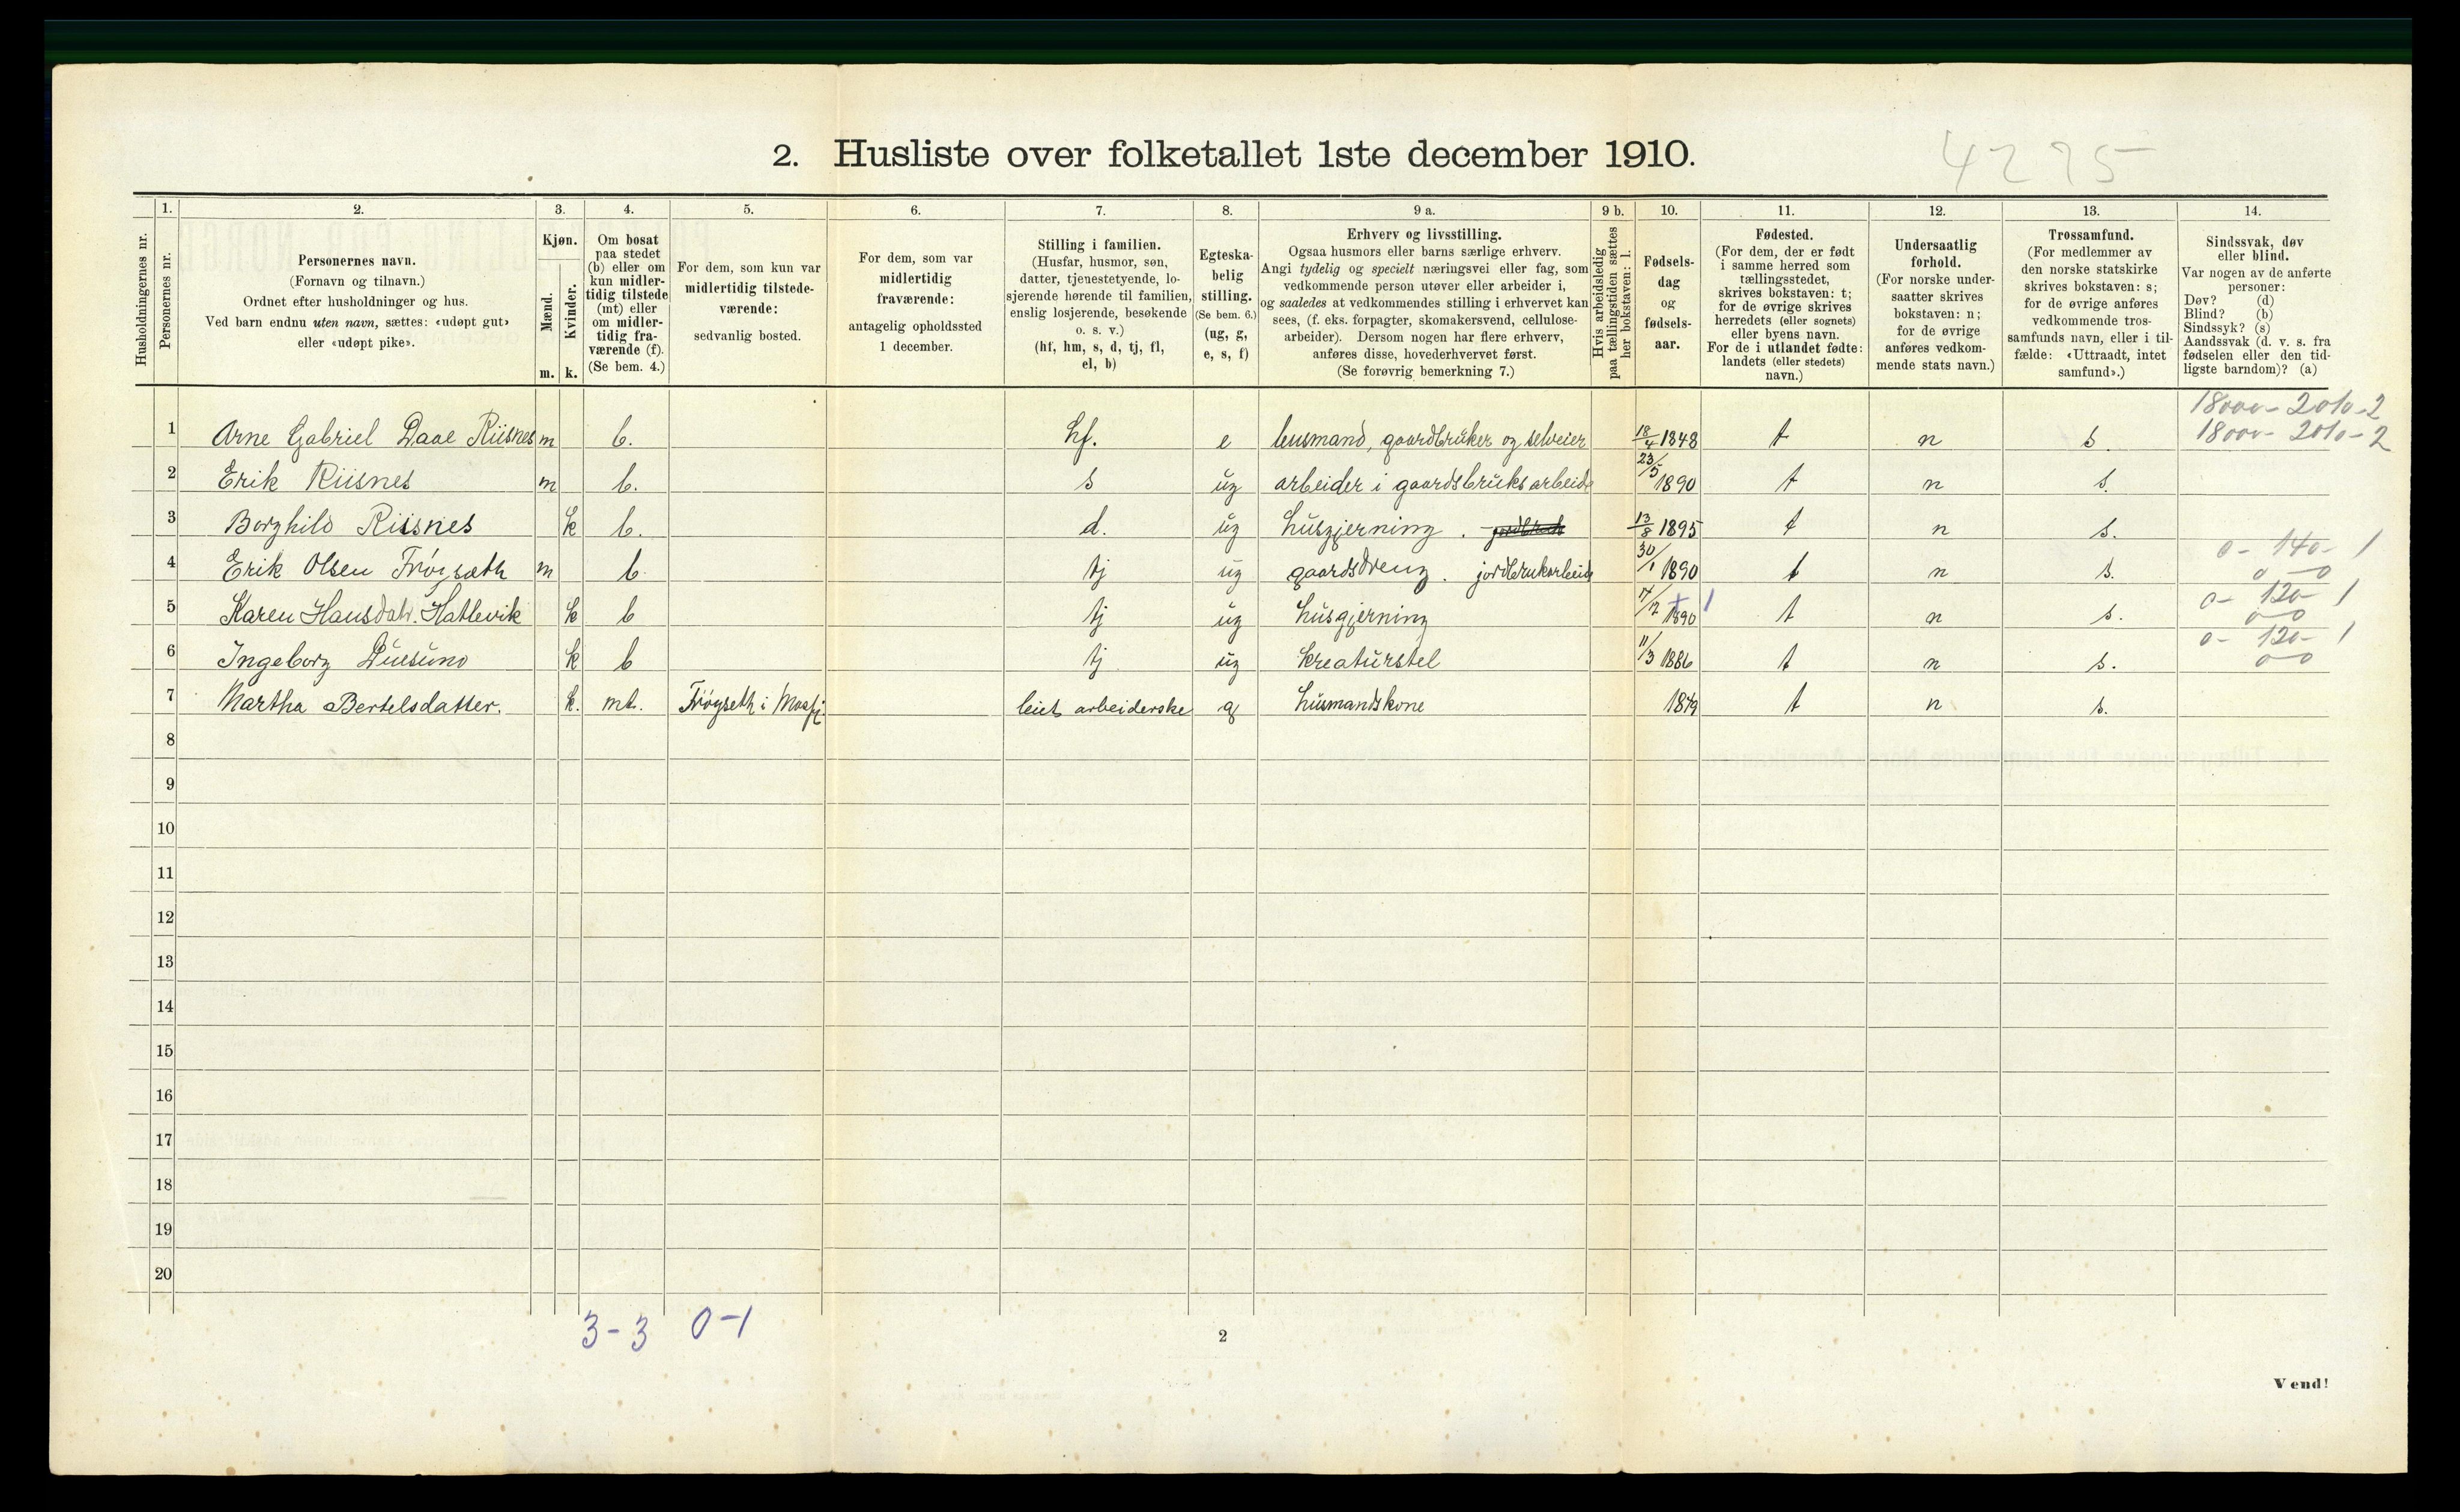 2. Husliste over folketallet 1ste december 1910.
4295
Husholdningernes nr.
1. Personernes nr.
2. Personernes navn.
(Fornavn og tilnavn.)
Ordnet efter husholdninger og hus.
Ved barn endnu uten navn, sættes: «udøpt gut»
eller «udøpt pike».
3. Kjøn.
Mænd. Kvinder.
m. k.
4. Om bosat
paa stedet
(b) eller om
kun midler-
tidig tilstede
(mt) eller
om midler-
tidig fra-
værende (f).
(Se bem. 4.)
5. For dem, som kun var
midlertidig tilstede-
værende:
sedvanlig bosted.
6. For dem, som var
midlertidig
fraværende:
antagelig opholdssted
1 december.
7. Stilling i familien.
(Husfar, husmor, søn,
datter, tjenestetyende, lo-
sjerende hørende til familien,
enslig losjerende, besøkende
o. s. v.)
(hf, hm, s, d, tj, fl,
el, b)
8. Egteska-
belig
stilling.
(Se bem. 6.)
(ug, g,
e, s, f)
9 a. Erhverv og livsstilling.
Ogsaa husmors eller barns særlige erhverv.
Angi tydelig og specielt næringsvei eller fag, som
vedkommende person utøver eller arbeider i,
og saaledes at vedkommendes stilling i erhvervet kan
sees, (f. eks. forpagter, skomakersvend, cellulose-
arbeider). Dersom nogen har flere erhverv,
anføres disse, hovederhvervet først.
(Se forøvrig bemerkning 7.)
9 b. Hvis arbeidsledig
paa tællingstiden sættes
her bokstaven: l.
10. Fødsels-
dag
og
fødsels-
aar.
11. Fødested.
(For dem, der er født
i samme herred som
tællingsstedet,
skrives bokstaven: t;
for de øvrige skrives
herredets (eller sognets)
eller byens navn.
For de i utlandet fødte:
landets (eller stedets)
navn.)
12. Undersaatlig
forhold.
(For norske under-
saatter skrives
bokstaven: n;
for de øvrige
anføres vedkom-
mende stats navn.)
13. Trossamfund.
(For medlemmer av
den norske statskirke
skrives bokstaven: s;
for de øvrige anføres
vedkommende tros-
samfunds navn, eller i til-
fælde: «Uttraadt, intet
samfund».)
14. Sindssvak, døv
eller blind.
Var nogen av de anførte
personer:
Døv? (d)
Blind? (b)
Sindssyk? (s)
Aandssvak (d. v. s. fra
fødselen eller den tid-
ligste barndom)? (a)
18000 - 2010 - 2
1 Arne Gabriel Daae Riisnes m b. hf. e lensmand, gaardbruker og selveier 18/4 1848 t n s. 18000 - 2010 - 2
2 Erik Riisnes m b. s ug arbeider i gaardsbruksarbeide 23/5 1890 t n s.
3 Borghild Riisnes k b. d. ug husgjerning . 13/8 1895 t n s.
0 - 140 - 1
4 Erik Olsen Frøyseth m b. tj ug gaardsdreng . jordbrukarbeide 30/1 1890 t n s. 0 - 0
0 - 120 - 1
5 Karen Hansdatr. Hatlevik k b tj ug husgjerning 1890 1 t n s. 0 - 0
0 - 120 - 1
6 Ingeborg Duesund k b tj ug kreaturstel 11/3 1886 t n s. 0 - 0
7 Martha Bertelsdatter. k. mt. Frøyseth i Masfj leiet arbeiderske g husmandskone t n s.
8
9
10
11
12
13
14
15
16
17
18
19
20
3 - 3 0 - 1
2
Vend!